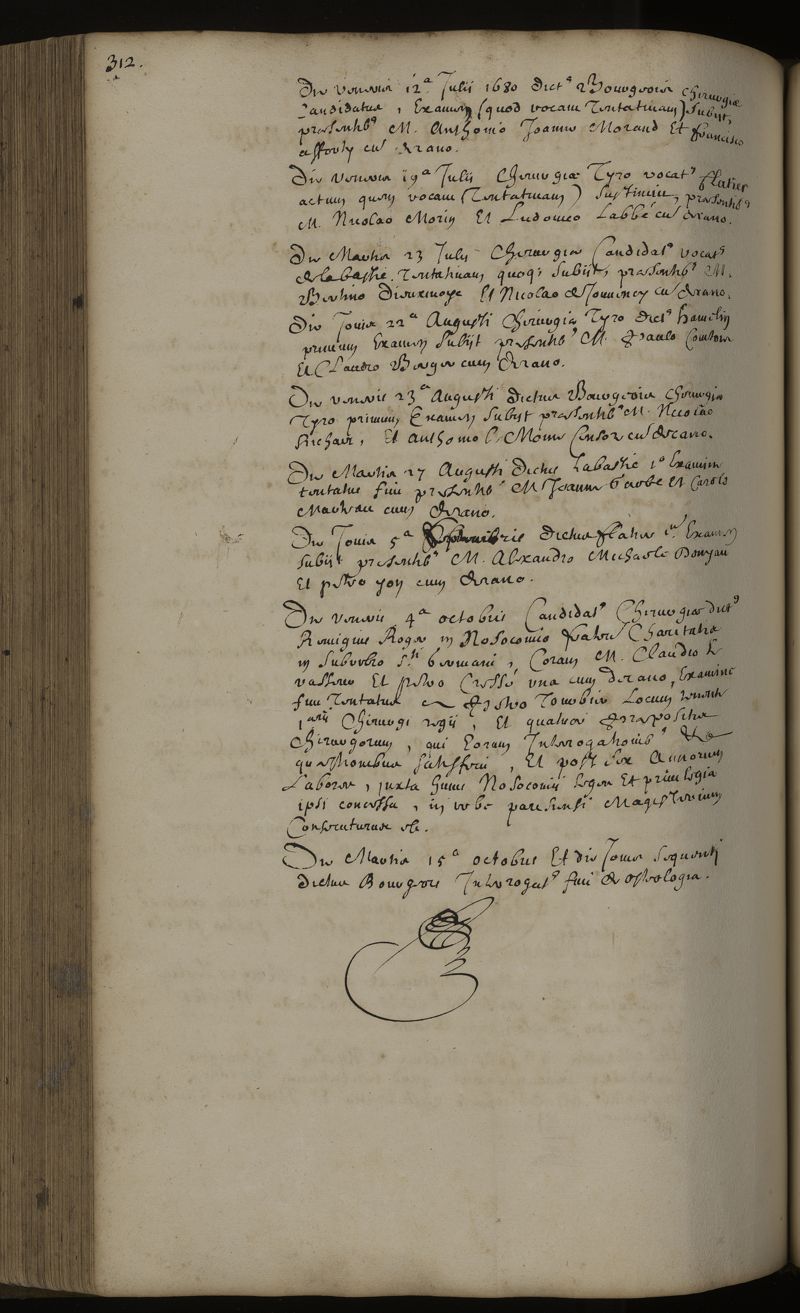 312.
Die veneris 12ª Julii 1680 dict9 Bourgeois chirurgiæ
Candidatus, Examen (quod vocant Tentativam) subiit,
præsentib9 M. Anthonio Joanne Morand Et francisco
cu Decano.
Die veneris 19ª Julii Chirurgiæ Tyro vocat9 flatier
actum quem vocant (Tentativam) sustinuit, præsentib9
M. Nicolao Morin Et Ludovico Labbé cu Decano.
Die Martis 23 Julii Chirurgiæ Candidat9 vocat9
de la bastie, Tentativam quoq; subiit, præsentib9 M.
Bertino Dieuxivoye Et Nicolao de Jouvency cu Decano.
Die Jovis 22ª Augusti Chirurgiæ Tyro dict9 hamelin
primum Examen subiit præsentib9 M. Paulo Courtois
Et Claudio Berger cum Decano.
Die veneris 23ª Augusti dictus Bourgeois Chirurgiæ
Tyro primum Examen subiit præsentib9 M. Nicolao
Richart, Et Anthonio le Moine Censore cu Decano.
Die Martis 27 Augusti dictus Labastie 1º Examine
tentatus fuit præsentib9 M Joanne Et Carolo
cum Decano.
Die Jovis 5ª Septembris dictus flatier Examen
subiit præsentib9 M. Alexandro Michaele Denyau
Et petro yon cum Decano.
Die veneris 4ª octobris Candidat9 Chirurgiæ dict9
Remigius Roger in Nosocomio fratru Charitatis
in suburbio Sti Germani, Coram M. Claudio le
vasseur Et petro Cressé una cum decano, Examine
fuit Tentatus Locum tenente
1arii Chirurgi regii, Et quatuor præpositis
Chirurgorum, qui Eorum Interrogationib9
quæstionibus satisfecit, Et post sex Annorum
Labores, juxta hujus Nosocomii leges Et privilegia
ipsi concessa, in urbe parisiensi Magisterium
Consecuturus est.
Die Martis 15ª octobris Et die Jovis sequenti
dictus Bourgeois Interrogat9 fuit de osteologia.